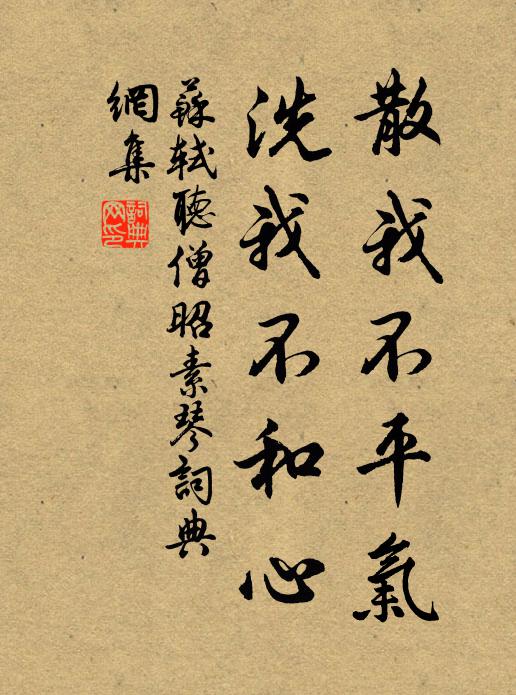 散我不平氣
洗我不和心
蘇軾聽僧昭素琴詞典
網集
詞典
网印